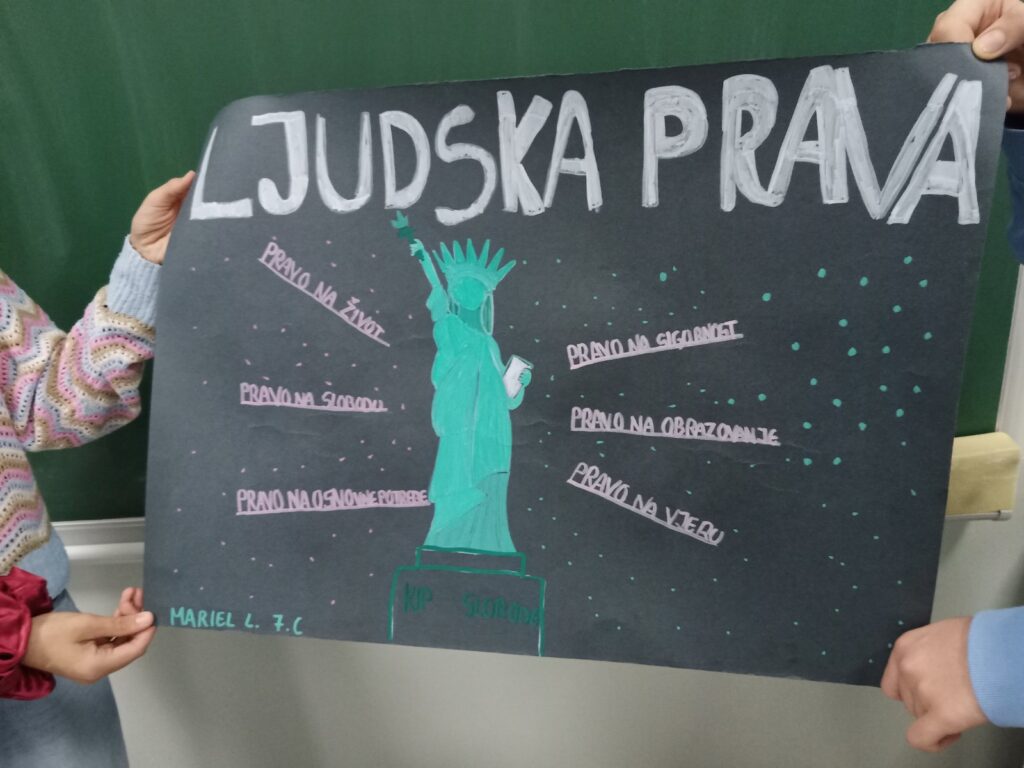 LJUDSKA PRAVA
PRAVO NA ŽIVOT
PRAVO NA SLOBODU
PRAVO NA OSNOVNE POTREBE
PRAVO NA SIGURNOST
PRAVO NA OBRAZOVANJE
PRAVO NA VJERU
KIP SLOBODE
MARIEL L. 7.C